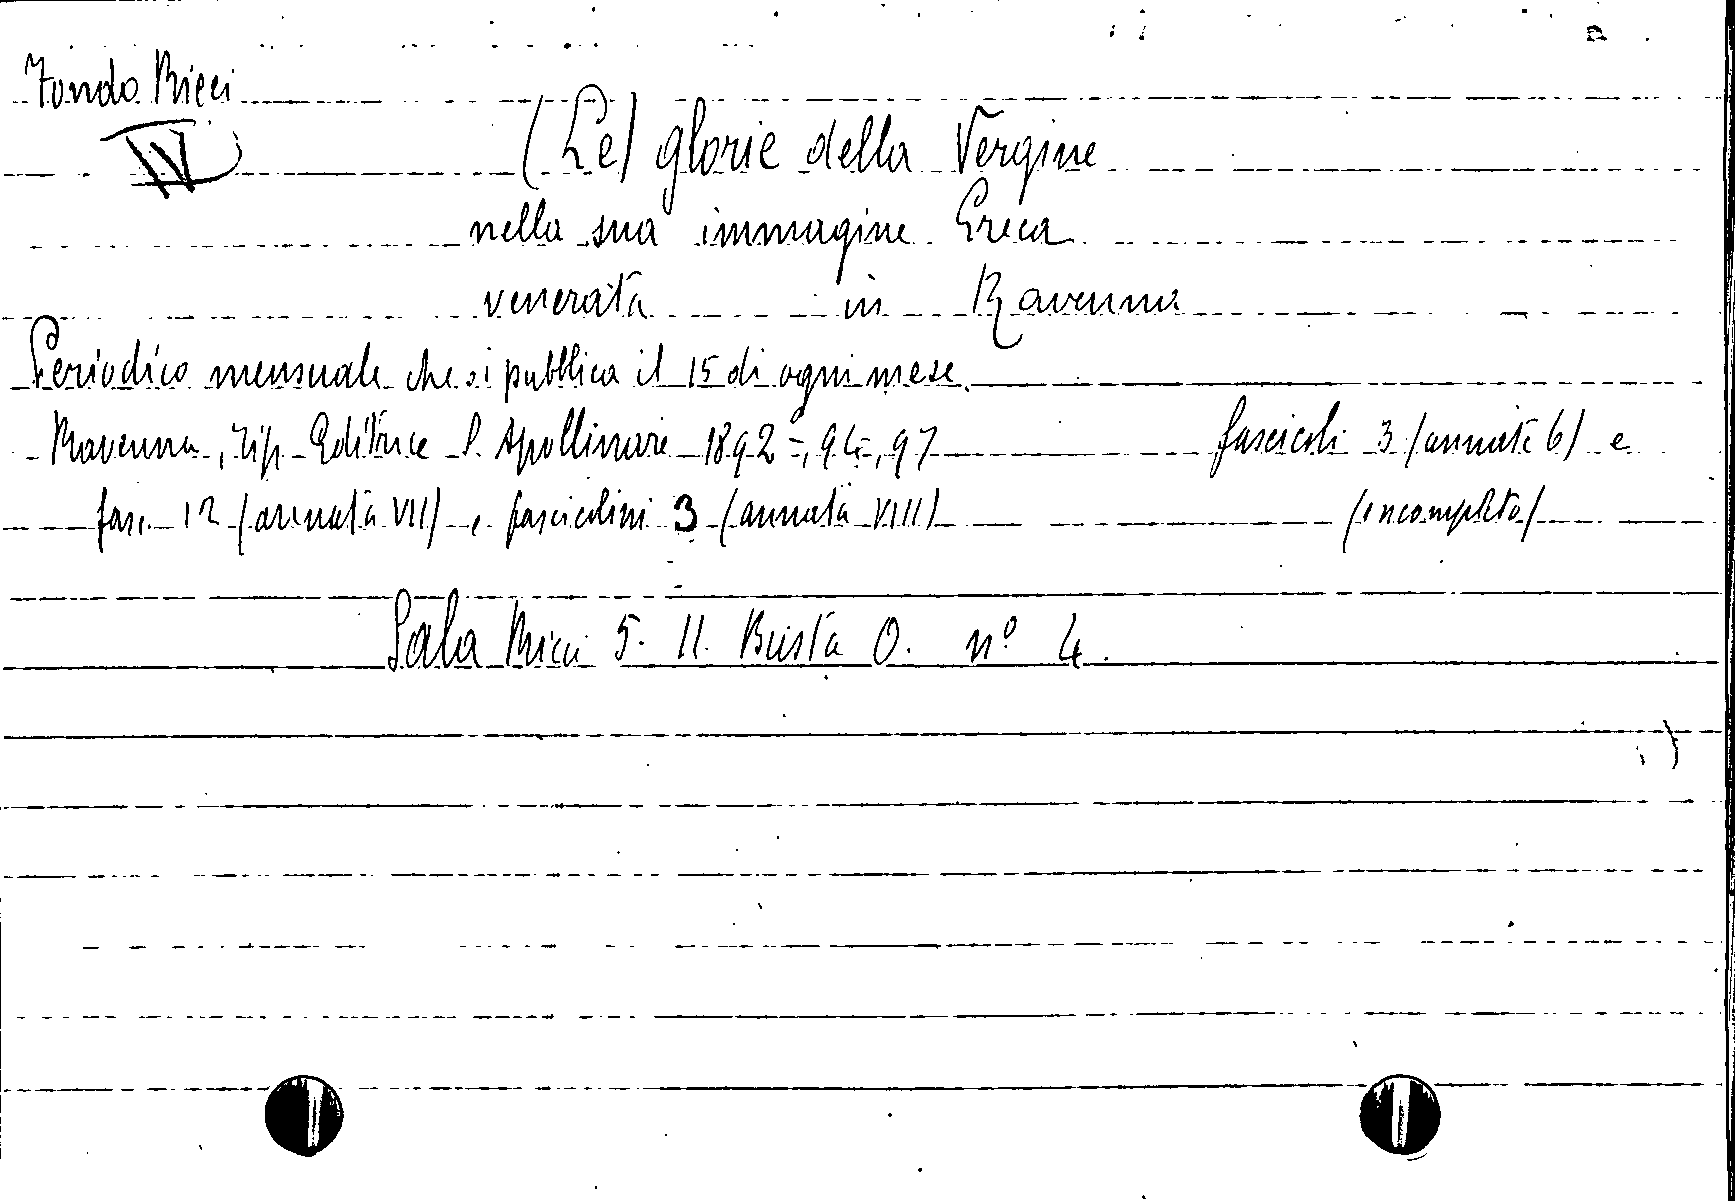 Fondo Ricci
IV
(Le) glorie della Vergine
nella sua immagine Greca
venerata in Ravenna
Periodico mensuale che si pubblica il 15 di ogni mese.
Ravenna, Tip. Editrice S. Apollinare 1892-, 94-, 97 fascicoli 3 (annate 6) e
fasc. 12 (annata VII) e fascicolini 3 (annata VIII) (incompleto)
Sala Ricci 5. 11. Busta O. nº 4.